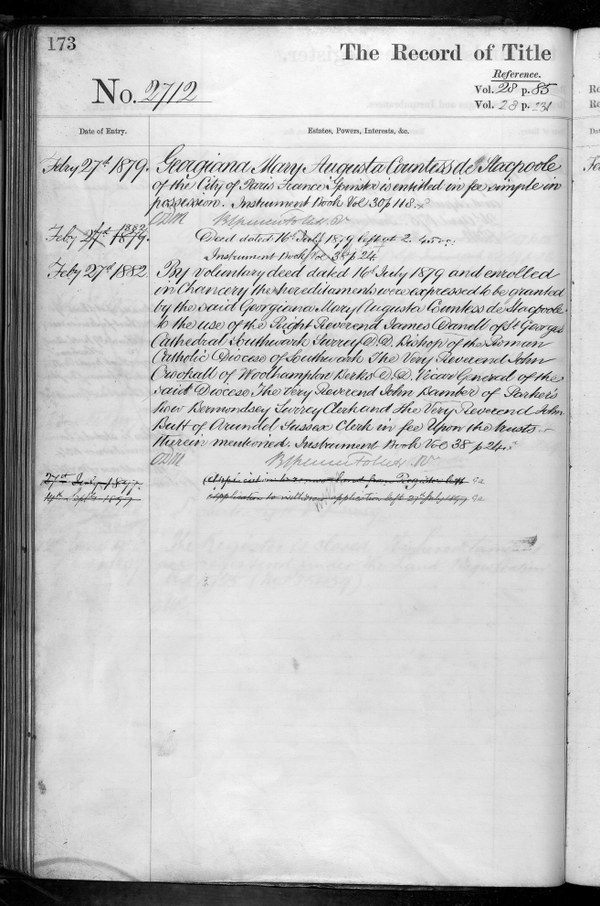 173
The Record of Title
Reference.
No. 2712
Vol. 28 p. 85
Vol. 28 p. 131
Date of Entry.
Estates, Powers, Interests, &c.
Feb'ry 27th 1879.
Georgiana Mary Augusta Countess de Stacpoole
of the City of Paris France Spinster is entitled in fee simple in
possession. Instrument Book Vol 30 p 118.
Feb'y 27th 1879. 1882
Deed dated 16th July 1879 left at 2.45
Instrument Book Vol 38 p 24
Feb'y 27th 1882
By voluntary deed dated 16th July 1879 and enrolled
in Chancery the hereditaments were expressed to be granted
by the said Georgiana Mary Augusta Countess de Stacpoole
to the use of the Right Reverend James Danell of St Georges
Cathedral Southwark Surrey D.D. Bishop of the Roman
Catholic Diocese of Southwark The Very Reverend John
Crookall of Woolhampton Berks D.D. Vicar General of the
said Diocese The Very Reverend John Bamber of Parkers
Row Bermondsey Surrey Clerk and The Very Reverend John
Butt of Arundel Sussex Clerk in fee Upon the trusts
therein mentioned. Instrument Book Vol 38 p 24
Application to remove Land from Register left
application to withdraw application left